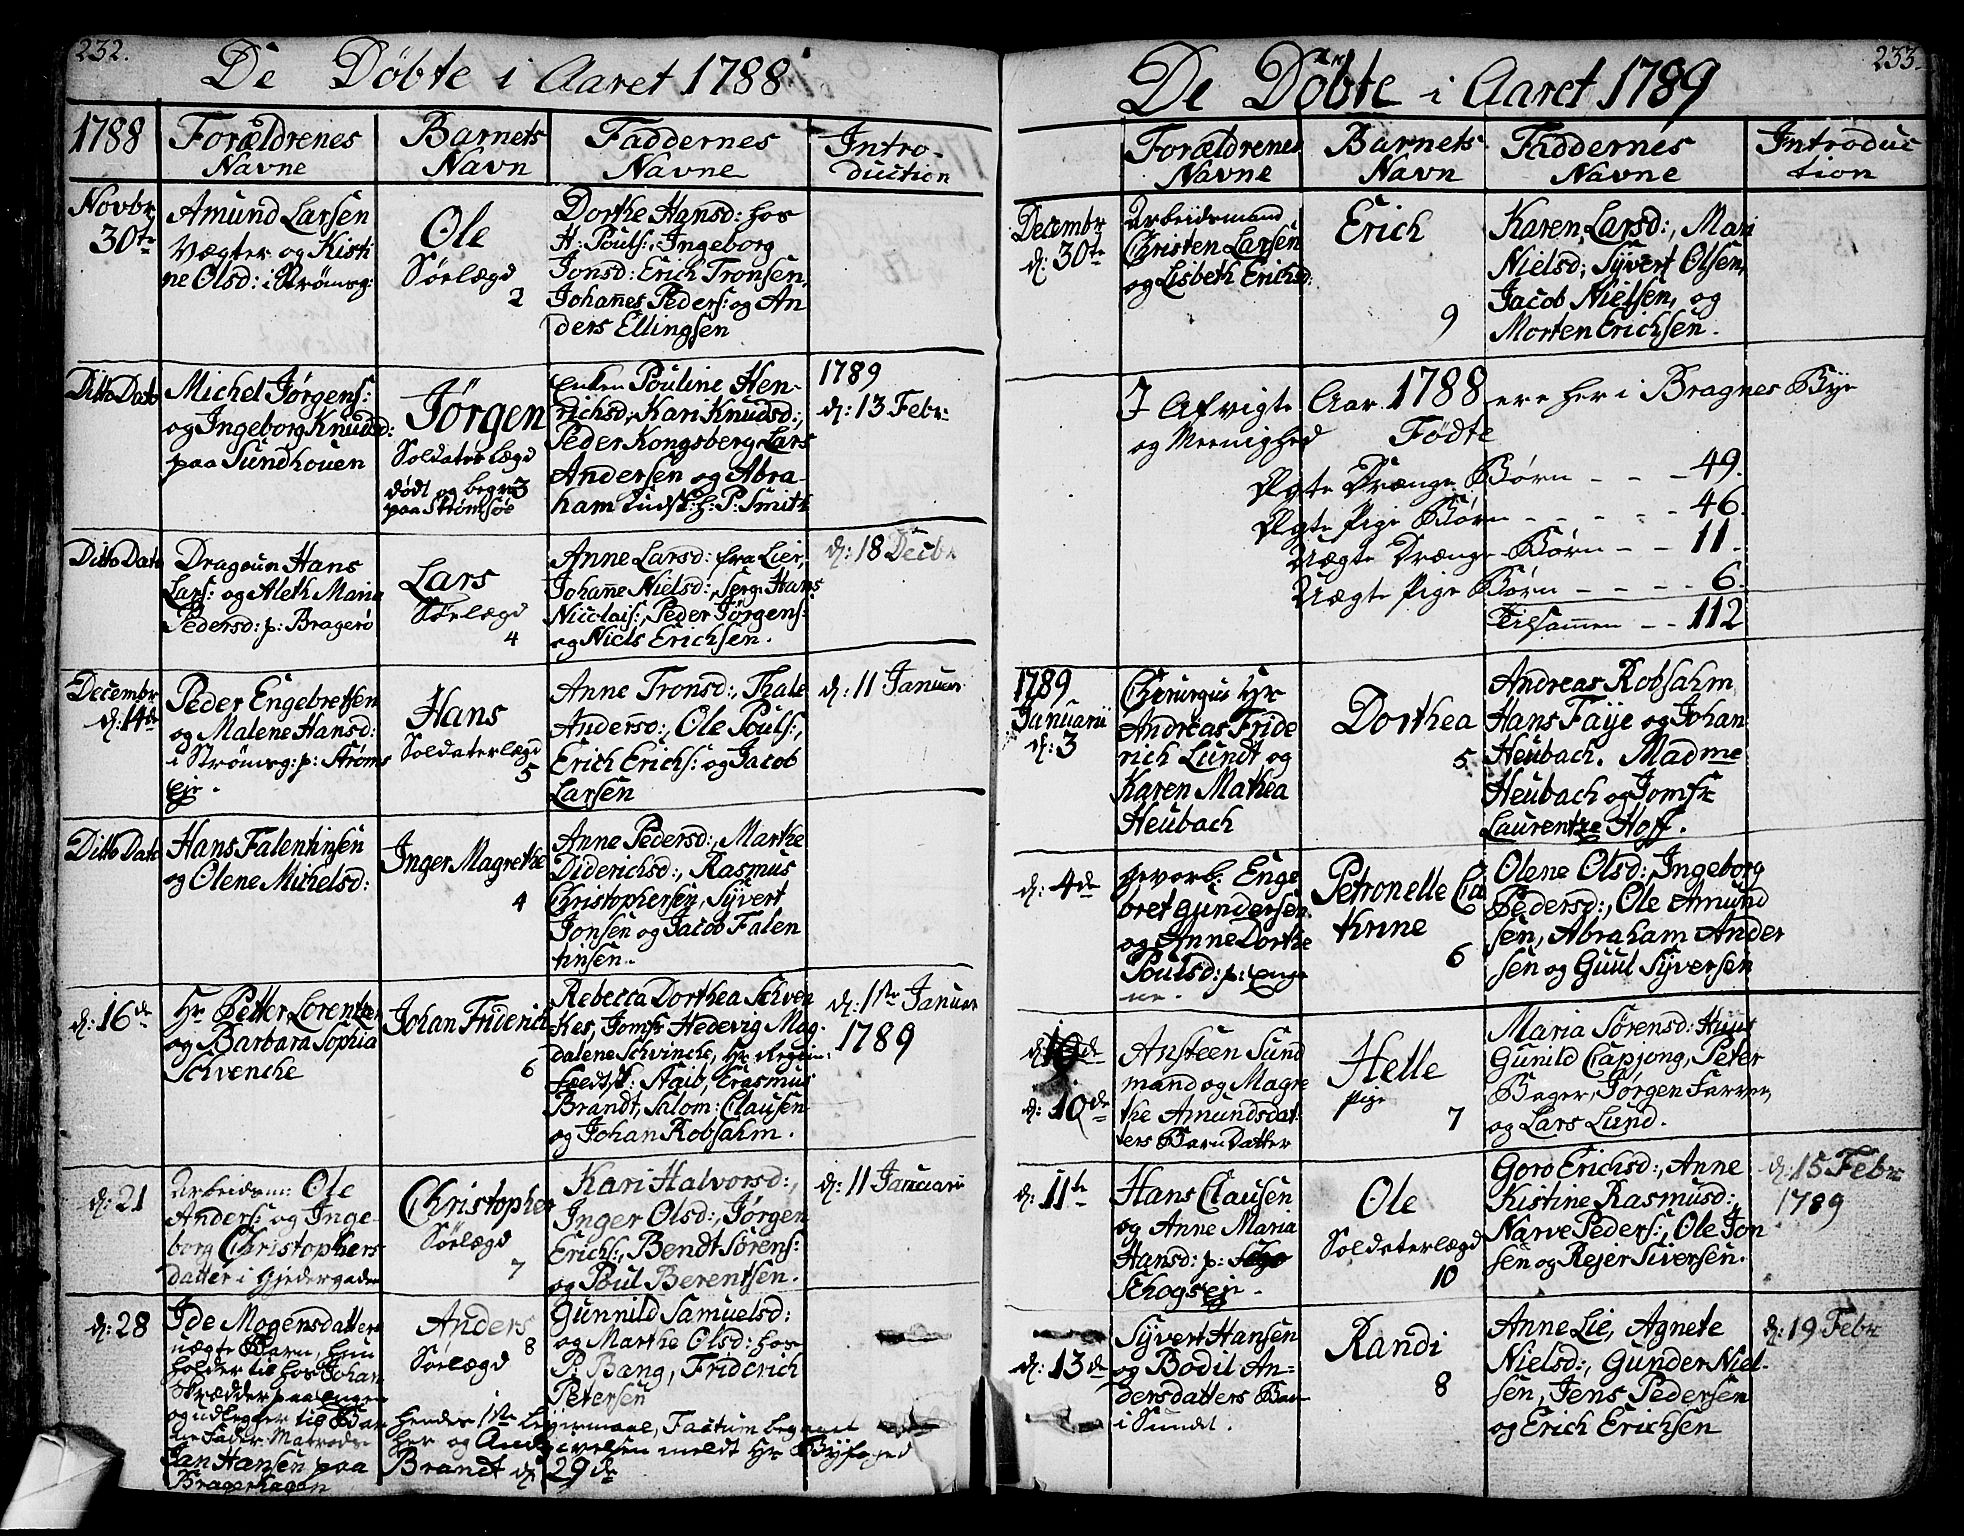 232.
De Døbte i Aaret 1788
1788
Forældrenes
Navne
Barnets
Navn
Faddernes
Navne
Intro-
duction
Novbr
30te
Amund Larsen
Vægter og Kisti
ne Olsd: i Strømsg:
Ole
Søelægd
2
Dorthe Hansd: hos
H: Pouls:, Ingeborg
Jonsd: Erich Tronsen,
Johannes Peders: og An
ders Ellingsen
Ditto Dato
Michel Jørgens:
og Ingeborg Knudsd:
paa Sundhouen
Jørgen
Soldaterlægd
død og begr: 3
paa Strømsøe
Enken Pouline Hen-
richsd, Kari Knudsd:,
Peder Kongsberg, Lars
Andersen og Abra-
ham tindst: h: P: Smith
1789
d: 13 Febr:
Ditto Dato
Dragoun Hans
Lars: og Aleth Marie
Pedersd: p: Bragerø
Lars
Søelægd
4
Anne Larsd: fra Lier,
Johanne Nielsd:, Serg: Hans
Niccolais:, Peder Jørgens:
og Niels Erichsen.
d: 18 Decbr
Decembr
d: 14de
Peder Engebretsen
og Malene Hansd:
i Strømsg: p: Strøms
ejr.
Hans
Soldaterlægd
5
Anne Tronsd:, Thale
Andersd:, Ole Pouls:,
Erich Erichs: og Jacob
Larsen
d: 11 Januar
Ditto Dato
Hans Falentinsen
og Olene Michelsd:
Inger Magrethe
4
Anne Pedersd:, Marthe
Diderichsd:, Rasmus
Christophersen, Syvert
Jonsen og Jacob Falen
tinsen.
d: 16de
Hr Petter Lorentzen
og Barbara Sophia
Schvencke
Johan Friderich
6
Rebecca Dorthea Schven
kes, Jomfr Hedevig Mag-
dalene Schvincke, Hr Regim:
Feldsk: Staib, Erasmus
Brandt, Salom: Clausen
og Johan Robsahm.
d: 1ste Januar
1789
d: 21
Arbeidsm: Ole
Anders: og Inge-
borg Christophers
datter i Gjedergaden
Christopher
Søelægd
7
Kari Halvorsd:,
Inger Olsd:, Jørgen
Erichs:, Bendt Sørens:
og Poul Berentsen.
d: 11 Januarii
d: 28
Ide Mogensdatters
uægte Barn, hun
holder til hos Johan
Skrædder paa Engen
og udlegger til Bar
nefader Matrods
Jan Hansen paa
Bragerhagen
Anders
8
Søelægd
Gunnild Samuelsd:
og Marthe Olsd: hos
P: Bang, Friderich
Petersen
hendes 1ste Leiermaal, Factum begaaet
her og Angivelsen meldt Hr Byfoged
Brandt d: 29de
233.
De Døbte i Aaret 1789
Forældrenes
Navne
Barnets
Navn
Faddernes
Navne
Introduc
tion
Decembr
d: 30te
Arbeidsmand
Christen Larsen
og Lisbeth Erichsd:
Erich
9
Karen Larsd:, Mari
Nielsd:, Syvert Olsen,
Jacob Nielsen, og
Morten Erichsen.
I Afvigte Aar 1788 ere her i Bragnes Bye
og Meenighed Fødte
Ægte Drænge Børn - - - 49.
Ægte Pige Børn - - - - - 46.
Uægte Drænge Børn - - 11.
Uægte Pige Børn - - - - 6.
Tilsamen - - 112
1789
Januarii
d: 3
Chirurgus Hr
Andreas Fride
rich Lundt og
Karen Mathea
Heubach
Dorthea
5
Andreas Robsahm
Hans Faÿe og Johan
Heubach. Madme
Heubach og Jomfr
Laurentze Hoff.
d: 4de
Enge
bret Gundersen
og Anne Dorthe
Poulsd: p: Enge
ne.
Petronelle Ca
thrine
6
Olene Olsd:, Ingeborg
Pedersd:, Ole Amund
sen, Abraham Ander
sen og Guul Syversen
d: 10de
Ansteen Sund
mand og Magre
the Amundsdat
ters Barn Datter
Helle
Pige
7
Maria Sørensd: Huus
Gunild Capjong, Peter
Bager, Jørgen Farver,
og Lars Lund.
d: 11te
Hans Clausen
og Anne Maria
Hansd: p:
Schogsejr.
Ole
Soldaterlægd
10
Goro Erichsd:, Anne
Kistine Rasmusd:,
Narve Peders:, Ole Jon
sen og Rejer Siversen.
d: 15 Febr
1789
d: 13de
Syvert Hansen
og Bodil An=
dersdatters Bar
i Sundet.
Randi
8
Anne Lie, Agnete
Nielsd:, Gunder Niel-
sen, Jens Pedersen
og Erich Erichsen
d: 19 Febr